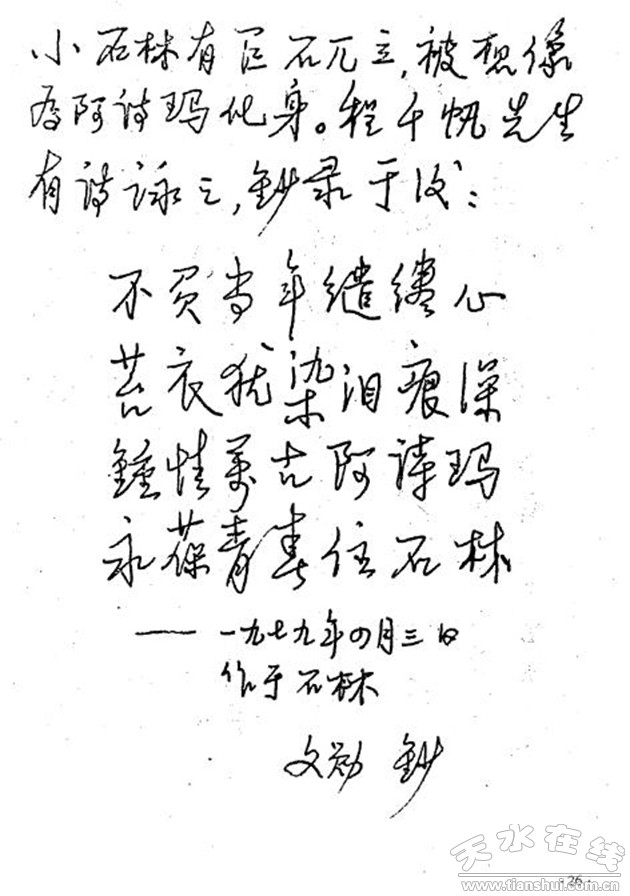 小石林有巨石兀立,被想像
为阿诗玛化身。程千帆先生
有诗咏之,钞录于后:
不负当年缱绻心
苔衣犹染泪痕深
鍾情万古阿诗玛
永葆青春住石林
——一九七九年四月三日
作于石林
文勋 钞
天水在线
www.tianshui.com.cn
·26·